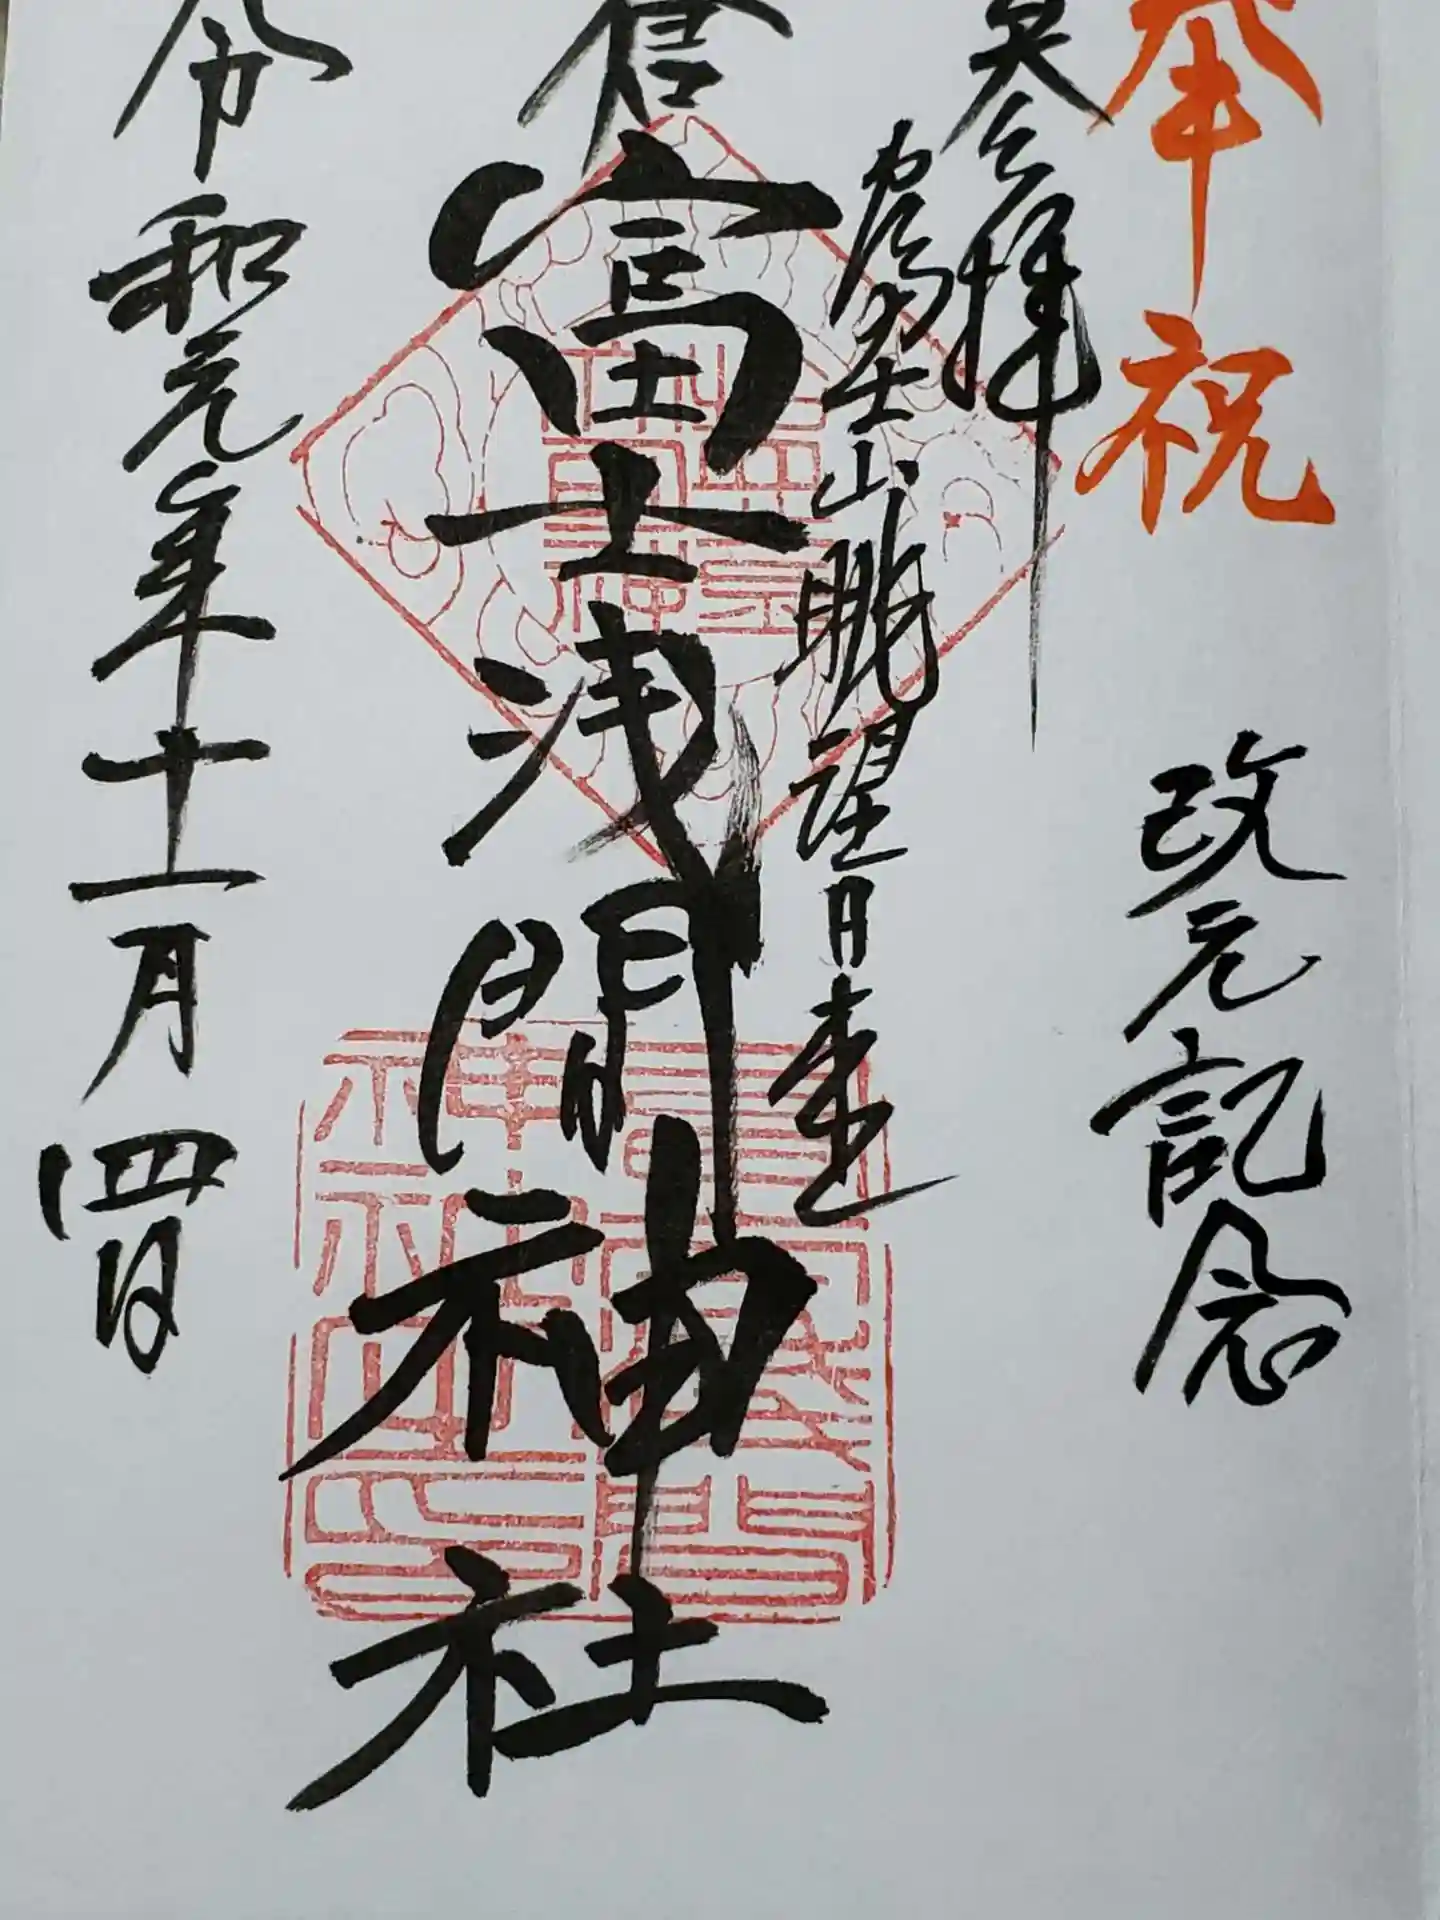 奉祝 改元記念
奥参拝
富士山眺望日本一
倉富士浅間神社
令和元年十一月四日